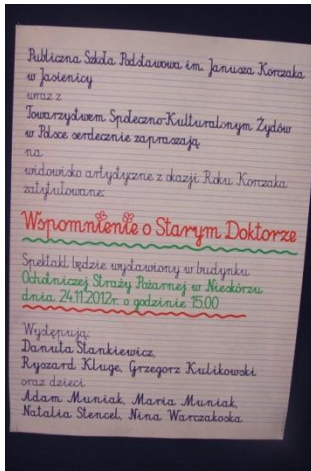 Publiczna Szkoła Podstawowa im. Janusza Korczaka
w Jasienicy
wraz z
Towarzystwem Społeczno-Kulturalnym Żydów
w Polsce serdecznie zapraszają
na
widowisko artystyczne z okazji Roku Korczaka
zatytułowane:
Wspomnienie o Starym Doktorze
Spektakl będzie wystawiony w budynku
Ochotniczej Straży Pożarnej w Niegkórzu
dnia 24.11.2012r. o godzinie 15.00
Występują:
Danuta Stankiewicz,
Ryszard Kluge, Grzegorz Kulikowski
oraz dzieci
Adam Muniak, Maria Muniak,
Natalia Stencel, Nina Warczakoska